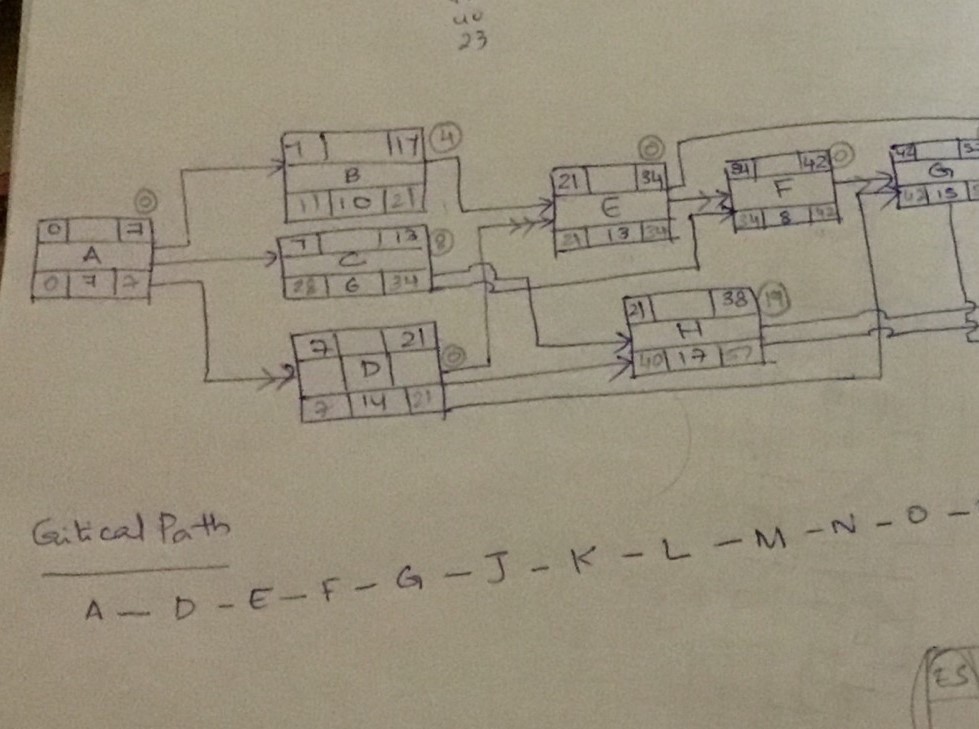 23
0
7 17 4
B
11 10 21
0 7 0
A
0 7 7
7 13 8
C
28 6 34
7 21
D 0
7 14 21
21 34 0
E
21 13 34
34 42 0
F
34 8 42
42
G
42 15
21 38 19
H
40 17 57
Critical Path
A — D - E - F - G - J - K - L - M - N - O -
ES